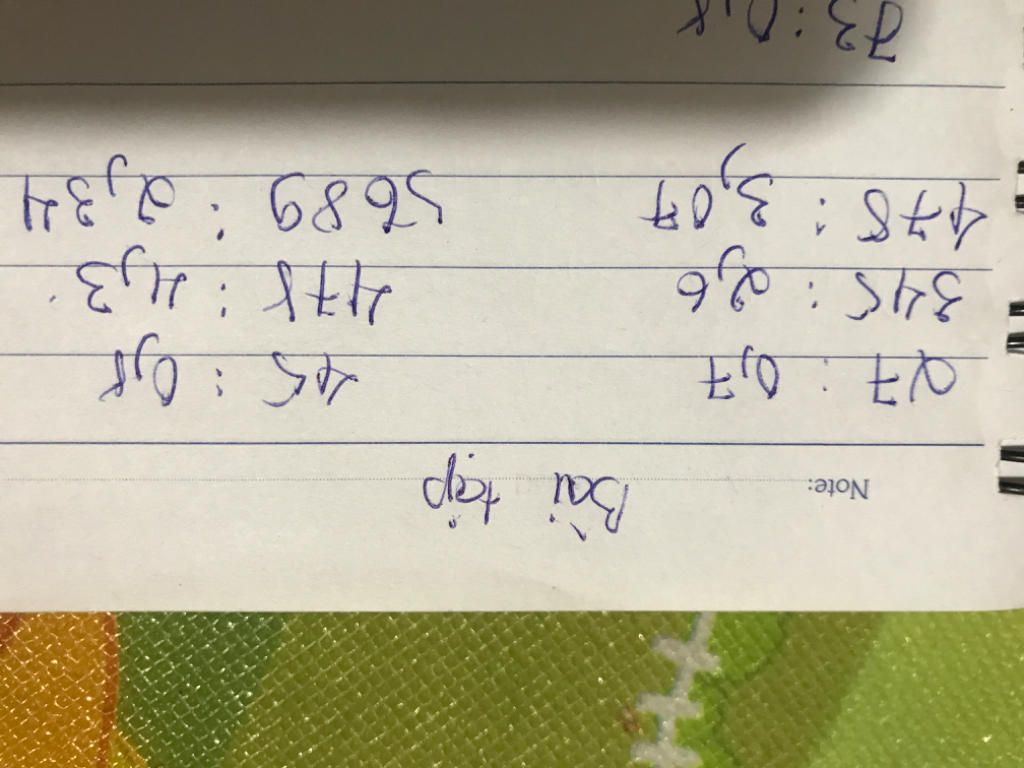 Note: Bài tập
27 : 0,7 45 : 0,8
345 : 2,6 478 : 4,3
478 : 3,07 5689 : 2,34
73 : 0,8